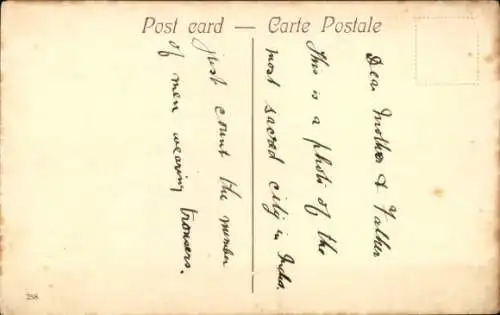 Post card — Carte Postale
Dear Mother & Father
This is a photo of the
most sacred city in India.
just count the number
of men wearing trousers.
288